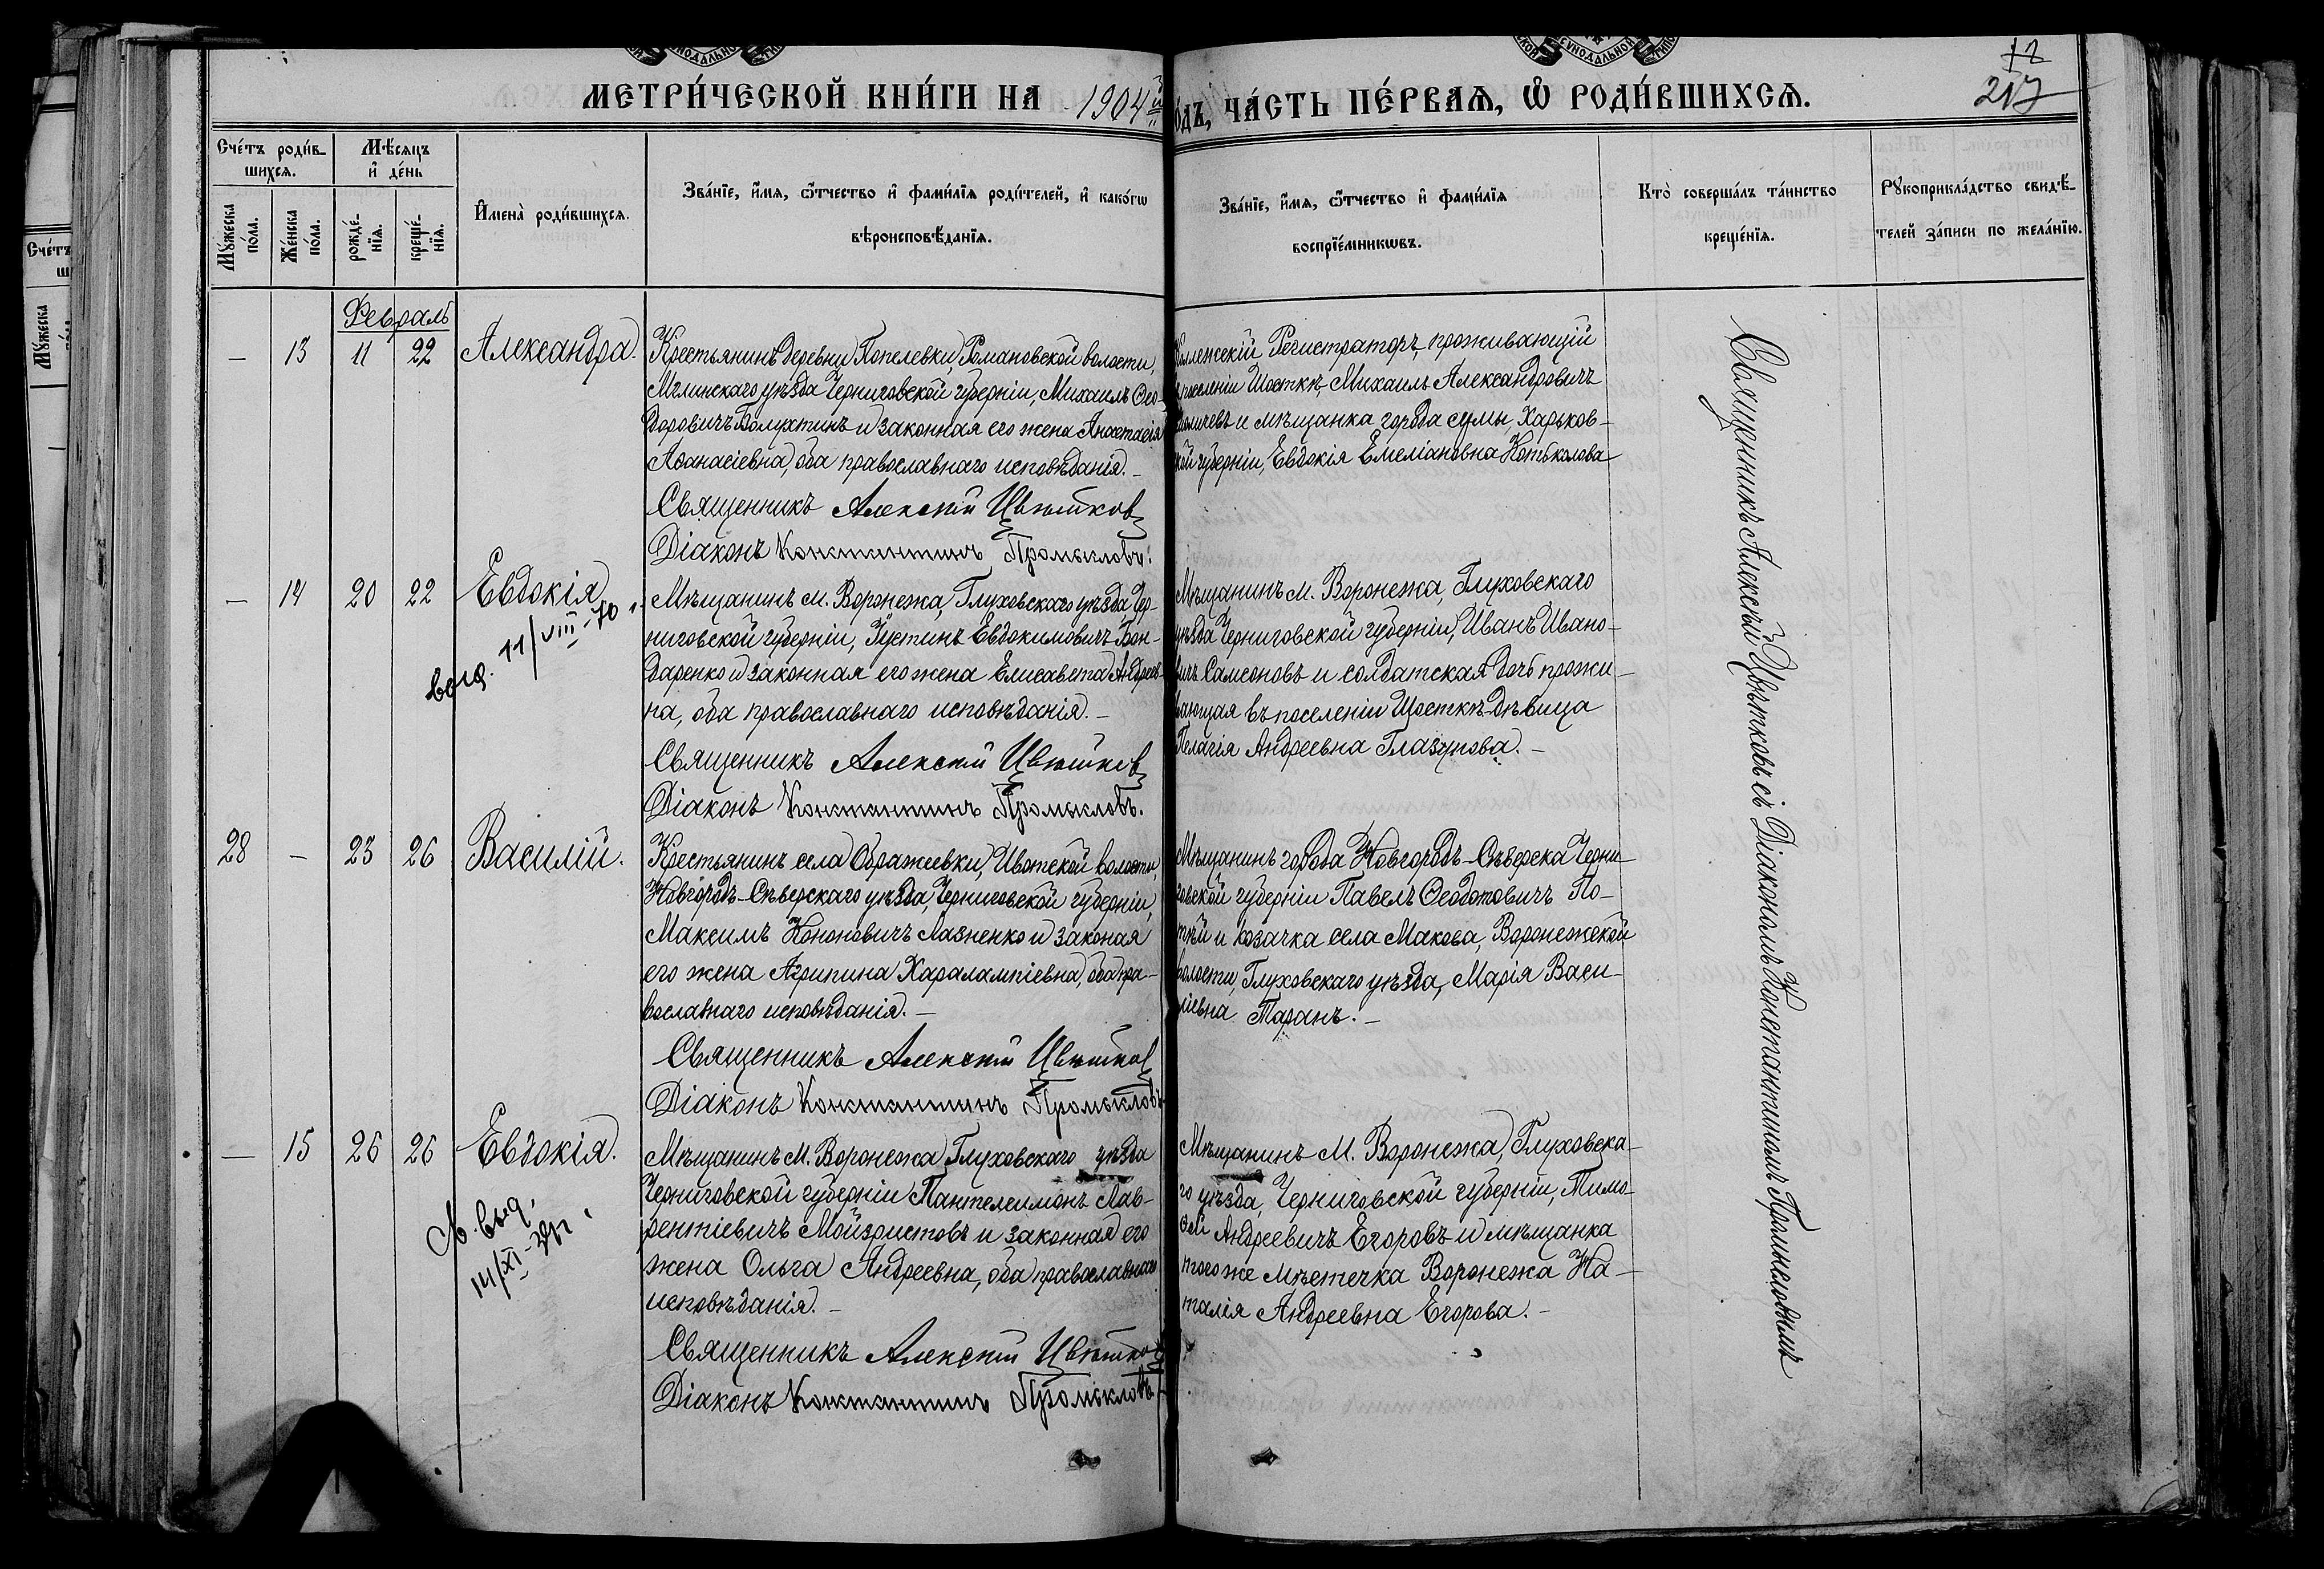 МЕТРИ́ЧЕСКОЙ КНИ́ГИ НА 1904й
ѻдъ, ЧА́СТЬ ПЕ́РВАѦ, Ѡ҆ РОДИ́ВШИХСѦ.
12
217
Сче́тъ роди́в-
шихсѧ.
Мѣ́сѧцъ
и҆ де́нь
Мꙋ́жеска
по́ла.
Же́нска
по́ла.
рожде́-
нїѧ.
креще́-
нїѧ.
И҆мена̀ роди́вшихсѧ.
Зва́нїе, и҆́мѧ, ѻ҆́тчество и҆ фами́лїѧ роди́телей, и҆ како́гѡ
вѣроисповѣ́данїѧ.
Зва́нїе, и҆́мѧ, ѻ҆́тчество и҆ фами́лїѧ
воспрїе́мникѡвъ.
Кто̀ соверша́лъ та́инство
креще́нїѧ.
Рꙋкоприкла́дство свидѣ́-
телей за́писи по жела́нїю.
Февраль
— 13 11 22 Александра.
Крестьянинъ деревни Попелевки, Романовской волости,
Мглинскаго уѣзда Черниговской губерніи, Михаилъ Ѳео-
доровичъ Балухтинъ и законная его жена Анастасія
Аѳанасіевна, оба православнаго исповѣданія. —
Священникъ Алексій Цвѣтковъ
Діаконъ Константинъ Промысловъ.
Коллежскій Регистраторъ, проживающій
въ поселеніи Шосткѣ, Михаилъ Александровичъ
и мѣщанка города Сумы, Харьков-
ской губерніи, Евдокія Емеліановна Котькалова
— 14 20 22 Евдокія
выд. 11/VIII-70 г.
Мѣщанинъ м. Воронежа, Глуховскаго уѣзда Чер-
ниговской губерніи, Іустинъ Евдокимовичъ Бон-
даренко и законная его жена Елисавета Андреев-
на, оба православнаго исповѣданія. —
Священникъ Алексій Цвѣтковъ
Діаконъ Константинъ Промысловъ.
Мѣщанинъ м. Воронежа, Глуховскаго
уѣзда Черниговской губерніи, Иванъ Ивано-
вичъ Самсоновъ и солдатская дочь прожи-
вающая въ поселеніи Шосткѣ дѣвица
Пелагія Андреевна Глазунова. —
28 — 23 26 Василій.
Крестьянинъ села Ображеевки, Ивотской волости,
Новгородъ-Сѣверскаго уѣзда, Черниговской губерніи,
Максимъ Кононовичъ Лазненко и законая
его жена Агрипина Харалампіевна, оба пра-
вославнаго исповѣданія. —
Священникъ Алексій Цвѣтковъ
Діаконъ Константинъ Промысловъ
Мѣщанинъ города Новгородъ-Сѣверска Черни-
говской губерніи Павелъ Ѳеодотовичъ По-
и козачка села Макова, Воронежской
волости, Глуховскаго уѣзда, Марія Васи-
ліевна Таранъ. —
— 15 26 26 Евдокія.
св. выд.
14/XI-
Мѣщанинъ М. Воронежа Глуховскаго уѣзда
Черниговской губерніи Пантелеимонъ Лав-
рентіевичъ Мойзристовъ и законная его
жена Ольга Андреевна, оба православнаго
исповѣданія. —
Священникъ Алексій Цвѣтковъ
Діаконъ Константинъ Промысловъ
Мѣщанинъ М. Воронежа, Глуховска-
го уѣзда, Черниговской губерніи, Тимо-
ѳей Андреевичъ Егоровъ и мѣщанка
того же мѣстечка Воронежа На-
талія Андреевна Егорова. —
Священникъ Алексѣй Цвѣтковъ съ Діакономъ Константиномъ Промысловымъ
Сче́тъ
Мꙋ́жеска